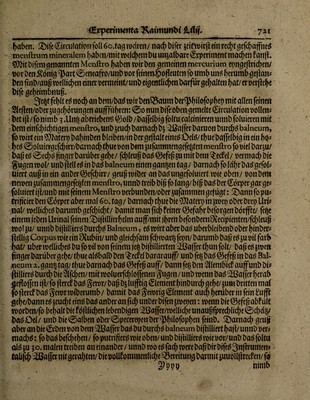 Experimenta Raimundi Lilij. 721
haben. Dise Circulation soll 60. tag wären/ nach diser zeit wirst ein recht geschaffnes
menstrum mineralem haben/ mit welchem du unzalbare Experiment machen kanst.
Mit disem genanten Menstro haben wir den gemeinen mercurium eingestrichen/
vor den König Part Seneastro/ und vor seinen Hoffleuten so umb uns herumb gestan-
den sind/ auß welchen einer vermeint/ und eigentlichen darfür gehalten hat/ er verstehe
dise geheimbnuß.
Jetzt fehlt es noch an dem/ das wir den Baum der Philosophey mit allen seinen
Aesten/ oder zugehörungen aufführen: So nun dise oben gemelte Circulation vollen-
det ist/ so nimb 7. Untz abtriebens Gold/ dasselbig soltu calcinieren unnd solvieren mit
dem einschichtigen menstro, und zeuch darnach diß Wasser darvon durchs balneum,
so wirt ein Matery dahinden bleiben in der gestalt eines Oels/ thue dasselbig in ein ho-
hes Solviergeschirr/ darnach thue von dem zusammengesetzten menstro so viel darzu/
daß es Sechs finger darüber gehe/ schleuß das Gefeß zu mit dem Deckel/ vermach die
Fugen wol/ und stell es in das balneum einen gantzen tag/ darnach so fähr das gesol-
viert auß in ein ander Geschirr/ geuß wider an das ungesolviert wie oben/ von dem
newen zusammengesetzten menstro, unnd treib diß so lang/ biß das der Cörper gar ge-
solviert ist/ und mit seinem Menstro verbunden/ oder zusammen gefügt: Dann so pu-
trificier den Cörper aber mal 60. tag/ darnach thue die Matery in zwey oder drey Uri-
nal/ welliches darumb geschicht/ damit man sich keiner Gefahr besorgen dörffe/ setze
einem jeden Urinal seinen Distillierhalm auff/ mit ihren behörden Recipienten/ schleuß
wol zu/ unnd distillierts durchs Balneum, es wirt aber das uberbleibend oder hinder-
stellig Corpus wie ein Rubin/ und gleichsam schwartz seyn/ darumb daß es zu vil farb
hat/ uber welliches du so vil von seinem jetz distillierten Wasser thun solt/ daß es zwen
finger darüber gehe/ thue alsbald den Deckel darauff/ und setz das Gefeß in das Bal-
neum 2. gantz tag/ thue darnach das Gefeß auff/ dann setz den Alembick auff und di-
stilliers durch die Aschen/ mit wolverschloßsenen Fugen/ und wenn das Wasser herab
geflossen ist/ so sterck das Fewr/ das das lufftig Element hindurch gehe/ zum dritten mal
so sterck das Fewr widerumb/ damit das Fewrig Element auch herüber in sein Lufft
gehe/ dann es zeucht eins das ander an sich under disen zweyen: wenn die Gefeß abkült
worden/ so behalt die köstlichen lebendigen Wasser/ welliche unaußsprechliche Schätz/
das Oel/ und die Salben oder Specereyen der Philosophen seind. Darnach geuß
aber an die Erden von dem Wasser das du durchs balneum distilliert hast/ unnd ver-
machs: so das beschehen/ so putrifiers wie oben/ und distilliers wie vor/ und das soltu
als zu 30. malen treiben an einander/ unnd wo es sach were das dir dises Jnstrumen-
talisch Wasser nit gerahten/ die vollkommenliche Bereitung darmit zuvollstrecken/ so
Yyyy nimb